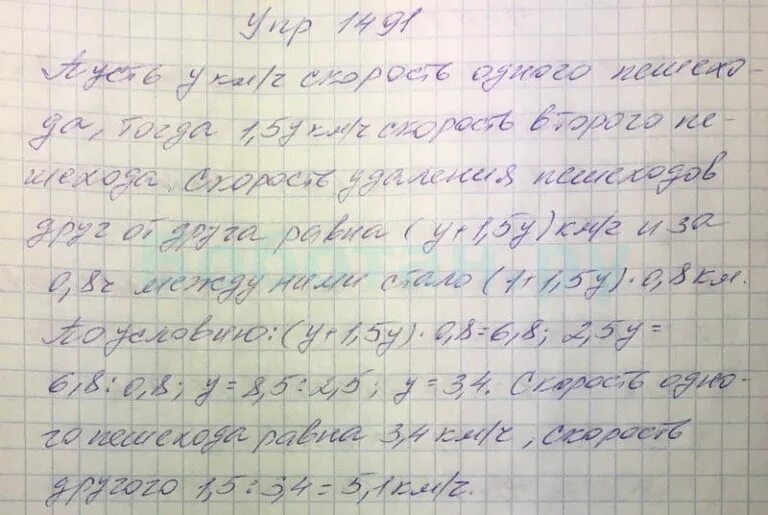 Упр 1491
Пусть у км/ч скорость одного пешехо-
да, тогда 1,5у км/ч скорость второго пе-
шехода. Скорость удаления пешеходов
друг от друга равна (у+1,5у) км/ч и за
0,8ч между ними стало (1+1,5у)·0,8 км.
По условию: (у+1,5у)·0,8=6,8; 2,5у=
6,8:0,8; у=8,5:2,5; у=3,4. Скорость одно-
го пешехода равна 3,4 км/ч, скорость
другого 1,5:3,4=5,1 км/ч.